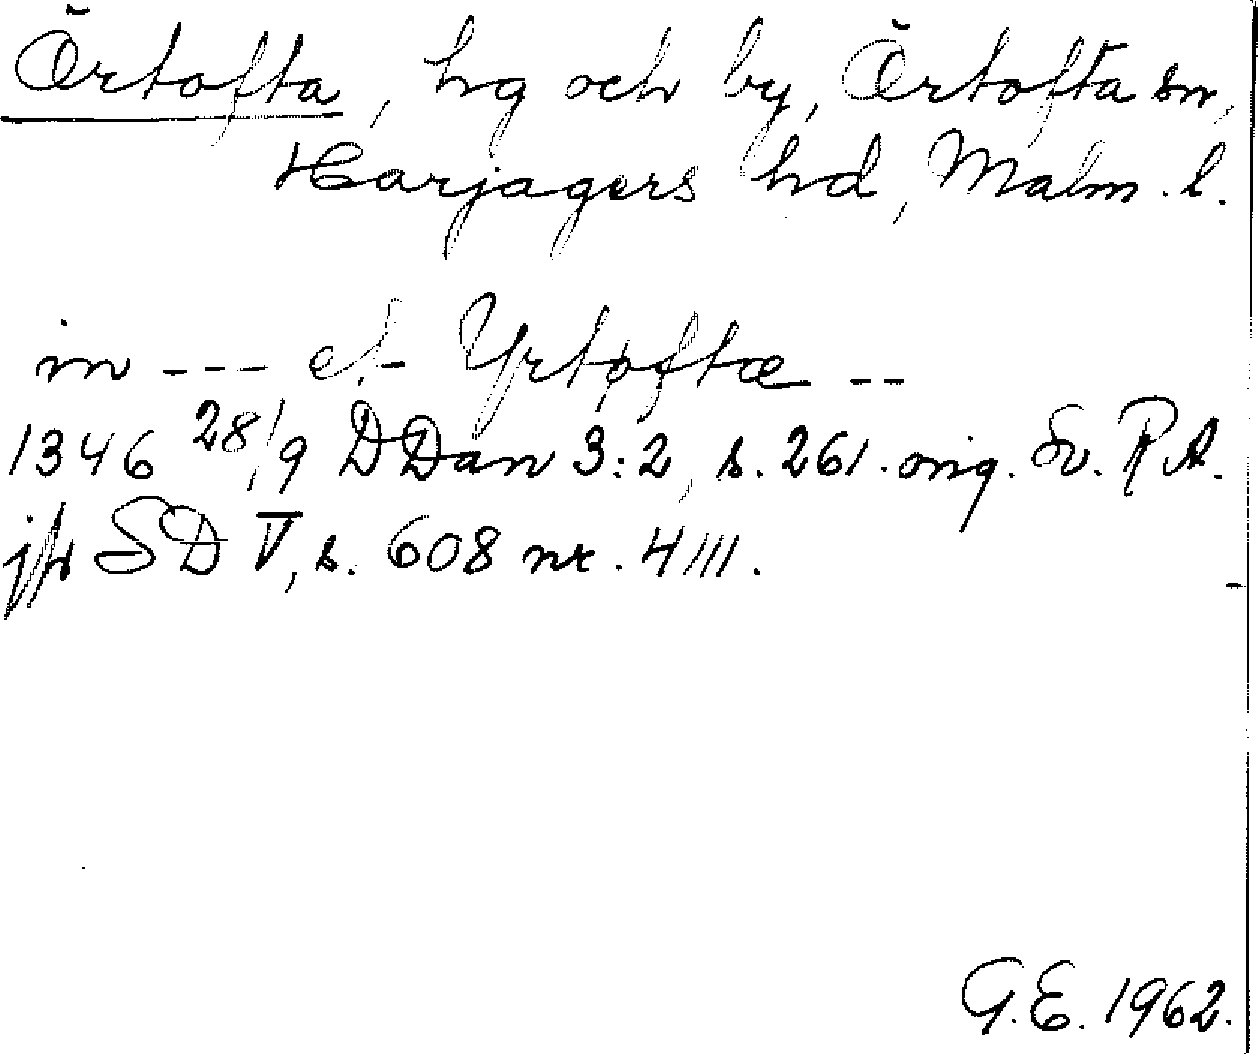 Örtofta, hg och by, Örtofta sn,
Harjagers hd, Malm. l.
in --- et - Yrtoftæ --
1346 28/9 DDan 3:2, s. 261. orig. Sv. RA.
jfr SD V, s. 608 nr. 4111.
G.E. 1962.